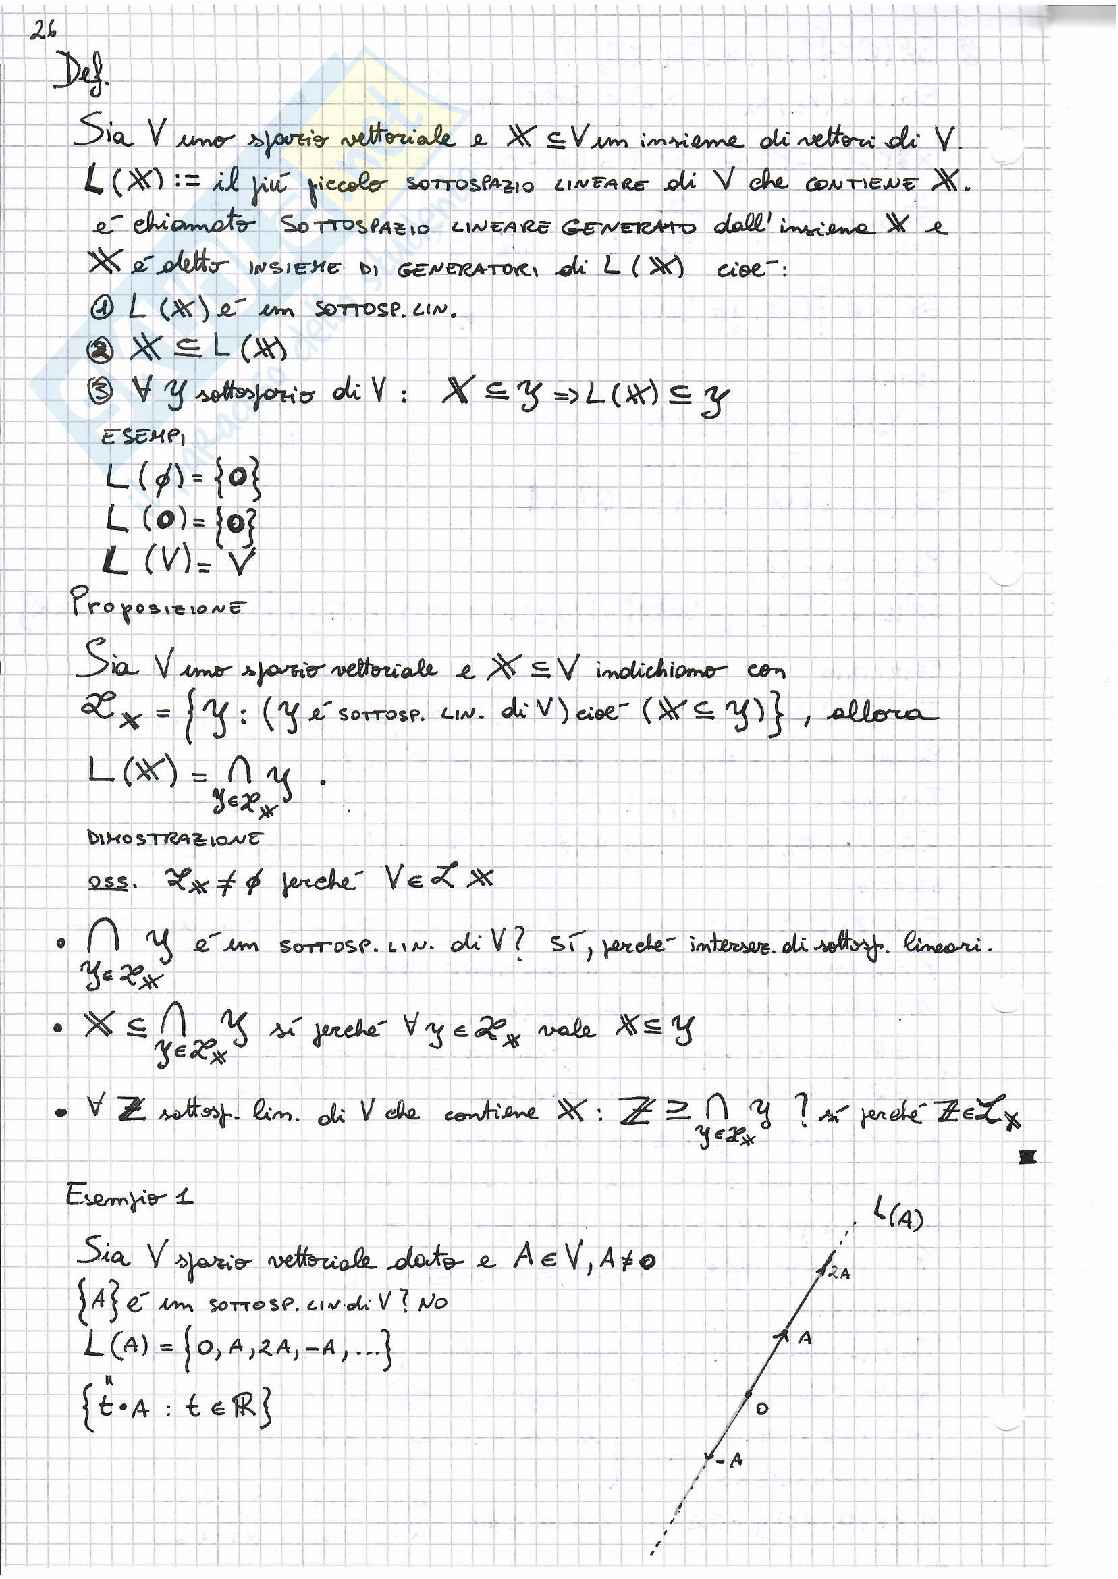 26
Def.
Sia V uno spazio vettoriale e 𝕏 ⊆ V un insieme di vettori di V.
L(𝕏) := il più piccolo SOTTOSPAZIO LINEARE di V che CONTIENE 𝕏.
è chiamato SOTTOSPAZIO LINEARE GENERATO dall'insieme 𝕏 e
𝕏 è detto INSIEME DI GENERATORI di L(𝕏) cioè:
① L(𝕏) è un SOTTOSP. LIN.
② 𝕏 ⊆ L(𝕏)
③ ∀ Y sottospazio di V: 𝕏 ⊆ Y => L(𝕏) ⊆ Y
ESEMPI
L(∅) = {0}
L(0) = {0}
L(V) = V
PROPOSIZIONE
Sia V uno spazio vettoriale e 𝕏 ⊆ V indichiamo con
ℒ𝕏 = {Y : (Y è SOTTOSP. LIN. di V) cioè (𝕏 ⊆ Y)}, allora
L(𝕏) = ∩ Y .
Y∈ℒ𝕏
DIMOSTRAZIONE
oss. ℒ𝕏 ≠ ∅ perché V ∈ ℒ𝕏
• ∩ Y è un SOTTOSP. LIN. di V? SÍ, perché intersez. di sottosp. lineari.
Y∈ℒ𝕏
• 𝕏 ⊆ ∩ Y sí perché ∀ Y ∈ ℒ𝕏 vale 𝕏 ⊆ Y
Y∈ℒ𝕏
• ∀ ℤ sottosp. lin. di V che contiene 𝕏 : ℤ ⊇ ∩ Y ? sí perché ℤ ∈ ℒ𝕏
Y∈ℒ𝕏
Esempio 1
Sia V spazio vettoriale dato e A ∈ V, A ≠ 0
{A} è un SOTTOSP. LIN di V? NO
L(A) = {0, A, 2A, -A, ...}
"
{t·A : t ∈ ℝ}
L(A)
2A
A
0
-A